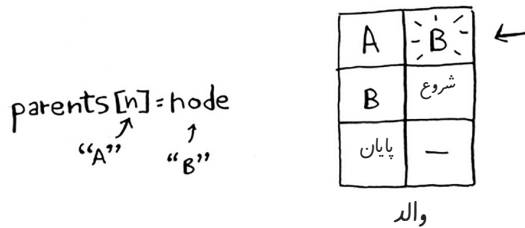 parents[n]=node
“A” “B”
A B
B شروع
پایان —
والد